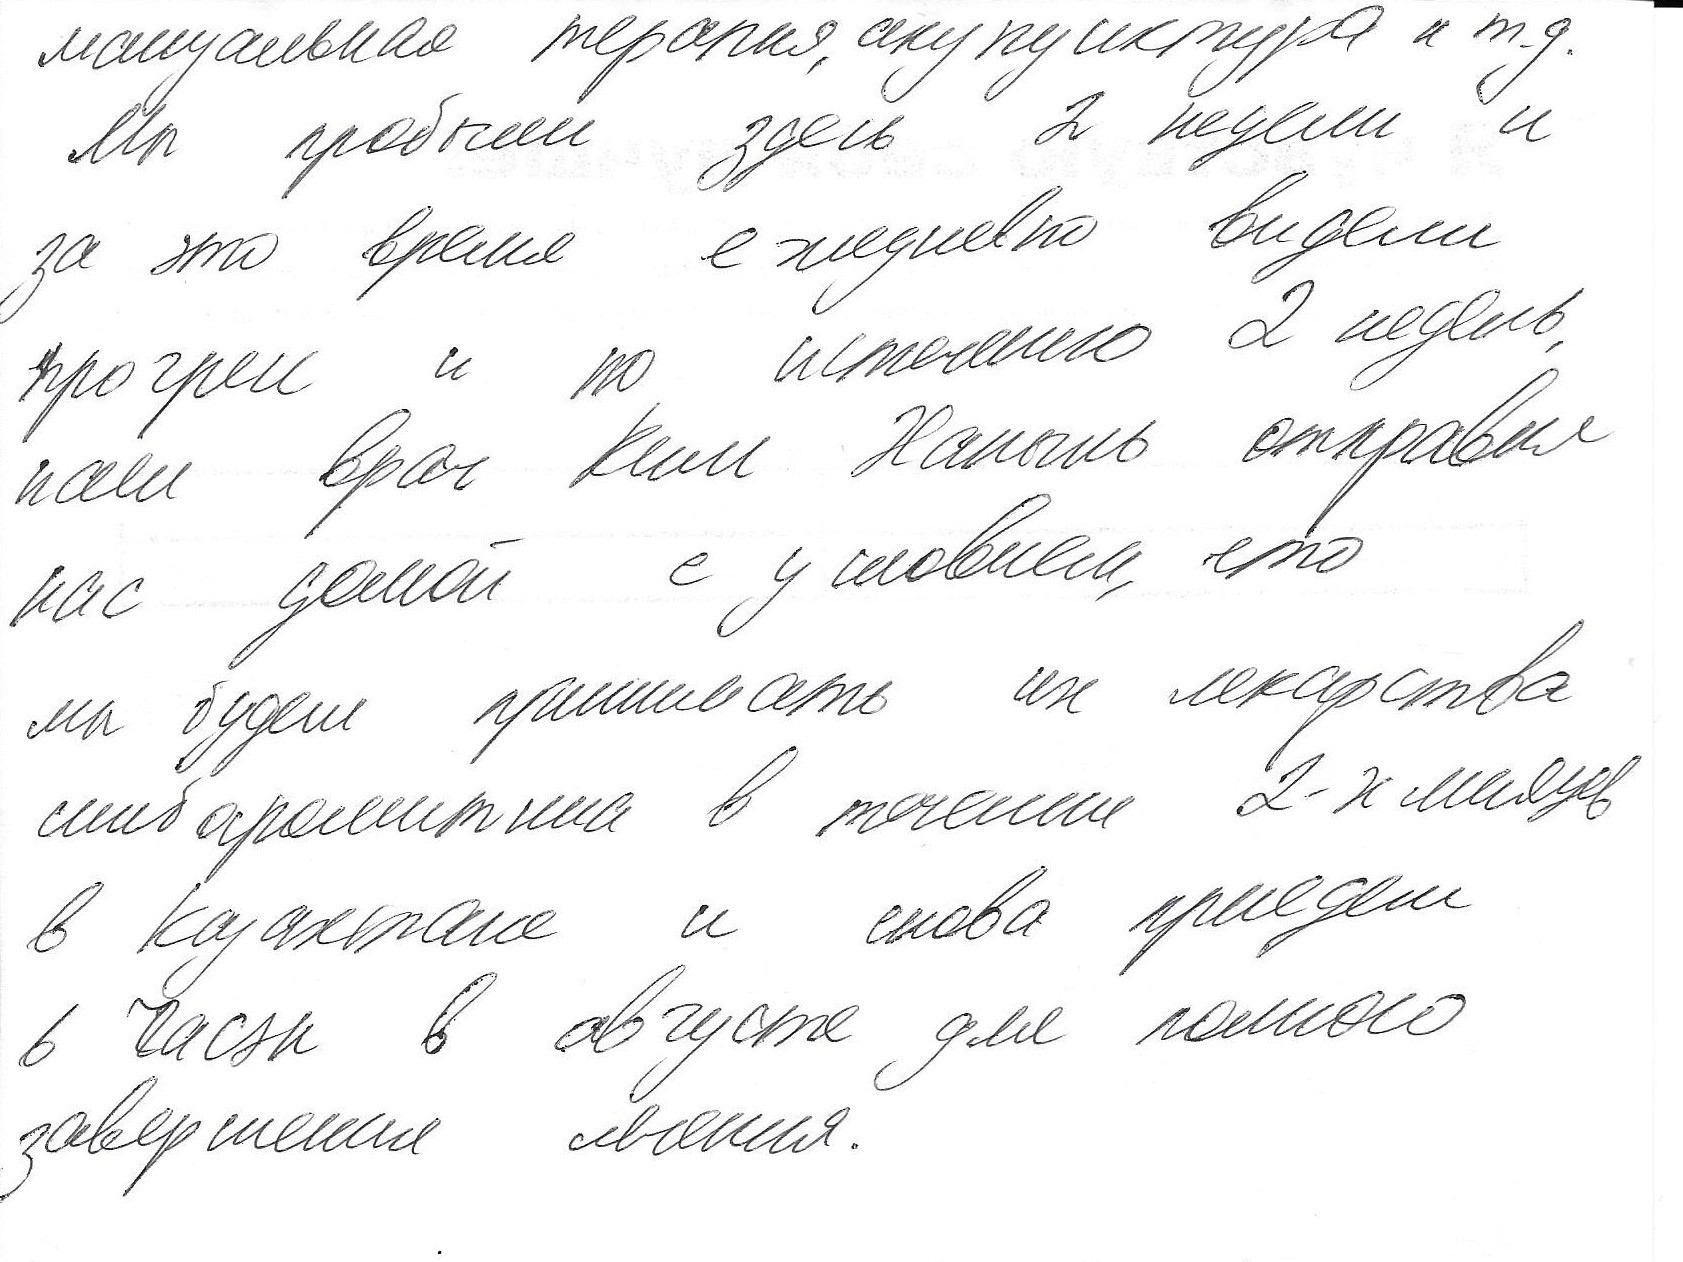 мануальная терапия, акупунктура и т.д.
Мы пробыли здесь 2 недели и
за это время ежедневно видели
прогресс и по истечению 2 недель,
наш врач Ким Ханыль отправил
нас домой с условием, что
мы будем принимать их лекарства
в течении 2-х месяцев
в Казахстане и снова приедем
в Часэн в августе для полного
завершения лечения.